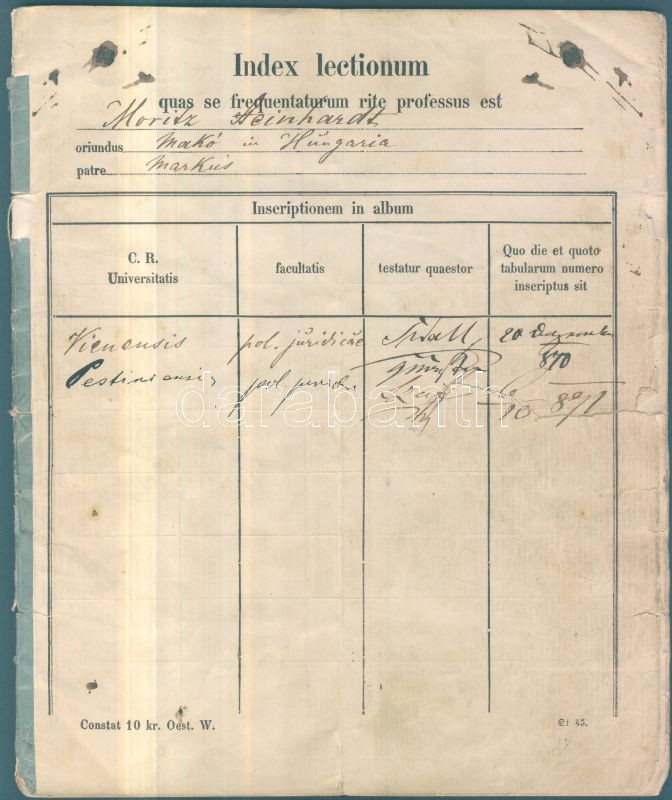 Index lectionum
quas se frequentaturum rite professus est
Moritz Steinhardt
oriundus Makó in Hungaria
patre Markús
Inscriptionem in album
C. R. Universitatis
facultatis
testatur quaestor
Quo die et quoto tabularum numero inscriptus sit
Vienensis
pol. juridicae
20 Dezember
870
Pestiniensis
10 891
darabanth
Constat 10 kr. Oest. W.
45.